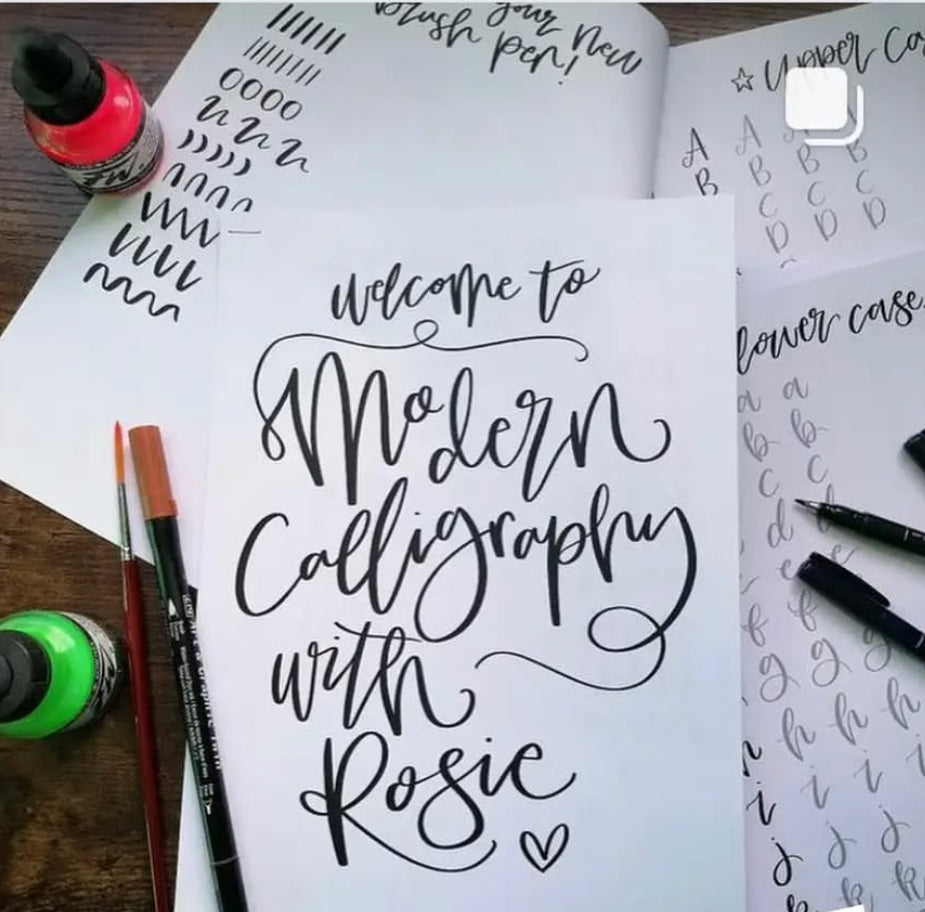 brush your new
pen!
☆ Upper Ca
A A A B
B B B
C C C
D D D
welcome to
Modern
Calligraphy
with
Rosie
lower case
a a
b b
c c
d d
e e
f f
g g g
h h h h
i i i i
j j j
k k k